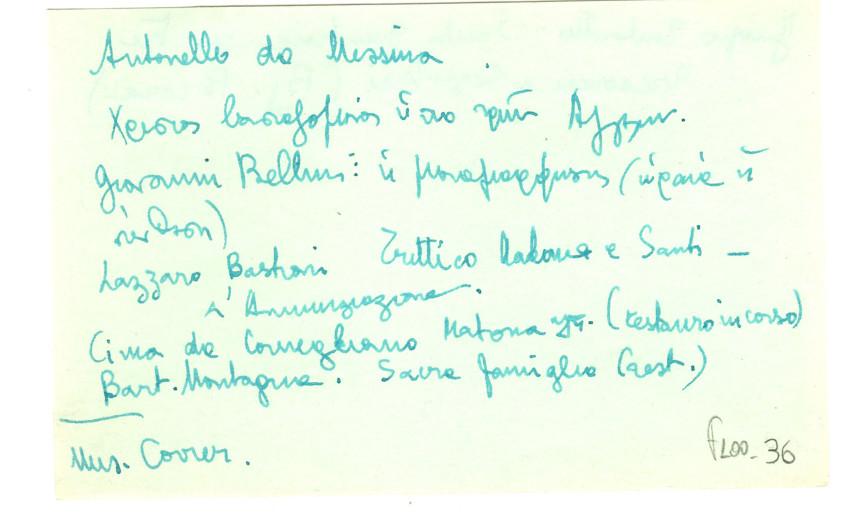 Antonello da Messina.
Χριστός βασταζόμενος ὑπό τριῶν Ἀγγέλων.
Giovanni Bellini: ἡ Μεταμόρφωσις (ὡραία ἡ
σύνθεση)
Lazzaro Bastiani Trittico Madonna e Santi —
L'Annunziazione.
Cima da Conegliano Madona (restauro in corso)
Bart. Montagna. Sacra famiglia (rest.)
Mus. Correr.
f100-36